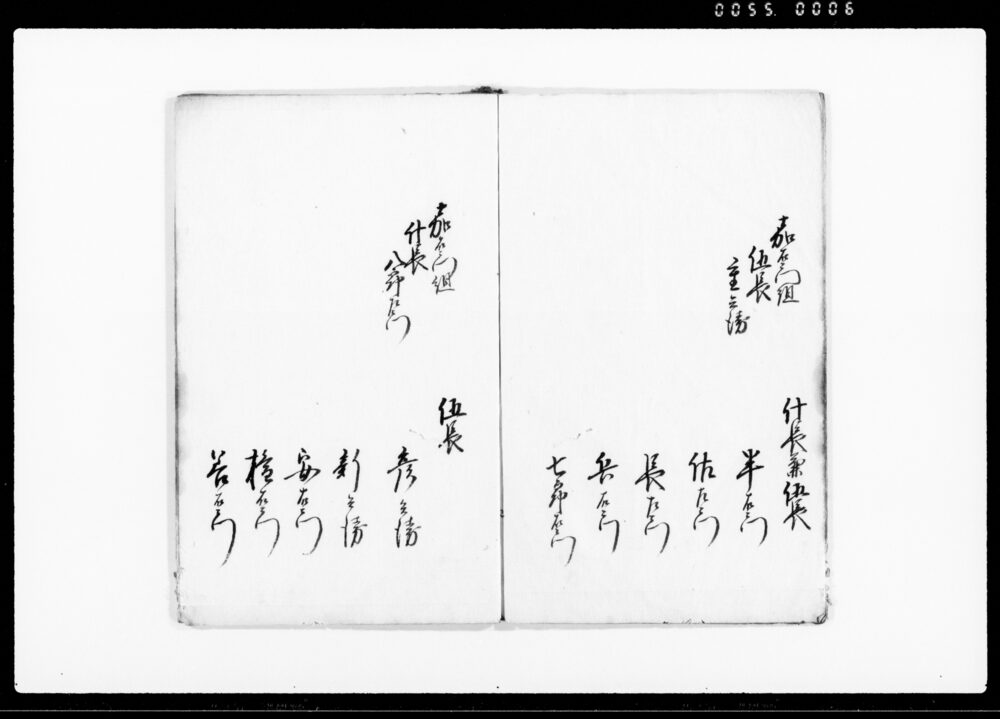 0055. 0006
嘉右衛門組
伍長
重兵衛
什長兼伍長
半右衛門
佐左衛門
長左衛門
兵右衛門
七郎右衛門
嘉右衛門組
什長
八郎左衛門
伍長
彦兵衛
新兵衛
安右衛門
右衛門
善右衛門